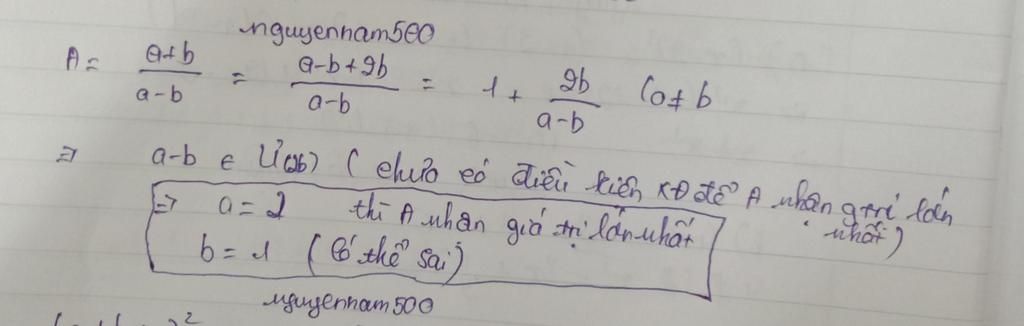 nguyennam500
A = a+b/a-b = a-b+2b/a-b = 1 + 2b/a-b (a≠b
⇒ a-b ∈ Ư(2b) (chưa có điều kiện XĐ để A nhận g.trị lớn nhất)
⇒ a=2 thì A nhận giá trị lớn nhất
b=1 (Có thể sai)
nguyennam500